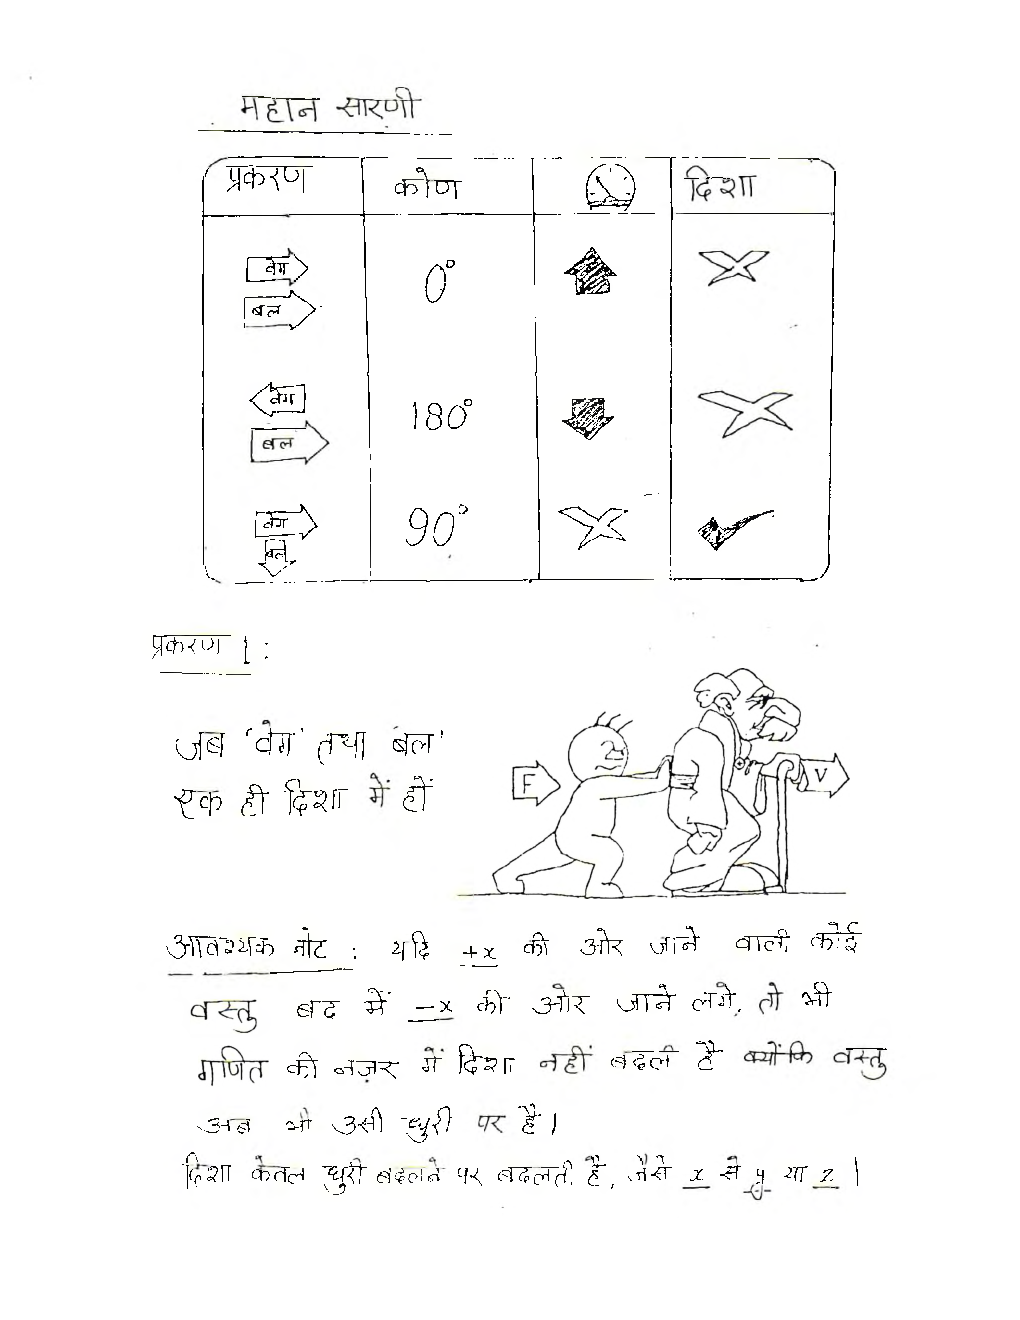 महान सारणी
प्रकरण कोण दिशा
वेग
बल
0°
वेग
बल
180°
वेग
बल
90°
प्रकरण 1 :
जब 'वेग' तथा 'बल'
एक ही दिशा में हों
F
V
आवश्यक नोट : यदि +x की ओर जाने वाली कोई
वस्तु बाद में -x की ओर जाने लगे, तो भी
गणित की नज़र में दिशा नहीं बदली है क्योंकि वस्तु
अब भी उसी धुरी पर है।
दिशा केवल धुरी बदलने पर बदलती है, जैसे x से y या z ।